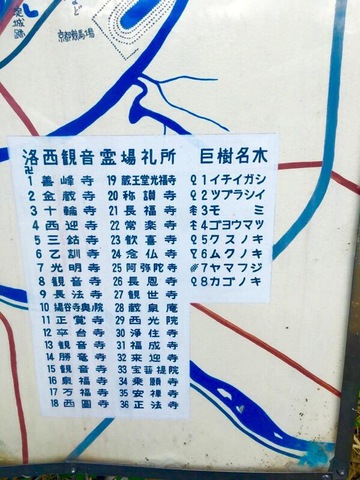 淀城跡
京都競馬場
洛西観音霊場礼所
卍
1 善峰寺
2 金蔵寺
3 十輪寺
4 西迎寺
5 三鈷寺
6 乙訓寺
7 光明寺
8 観音寺
9 長法寺
10 楊谷寺奥ノ院
11 正覚寺
12 卒台寺
13 観音寺
14 勝竜寺
15 観音寺
16 泉福寺
17 万福寺
18 西圓寺
19 蔵王堂光福寺
20 称讃寺
21 長福寺
22 常楽寺
23 歓喜寺
24 念仏寺
25 阿弥陀寺
26 長恩寺
27 観世寺
28 蔵泉庵
29 西光院
30 浄住寺
31 福成寺
32 来迎寺
33 宝菩提院
34 乗願寺
35 安禅寺
36 正法寺
巨樹名木
1 イチイガシ
2 ツブラシイ
3 モミ
4 ゴヨウマツ
5 クスノキ
6 ムクノキ
7 ヤマフジ
8 カゴノキ